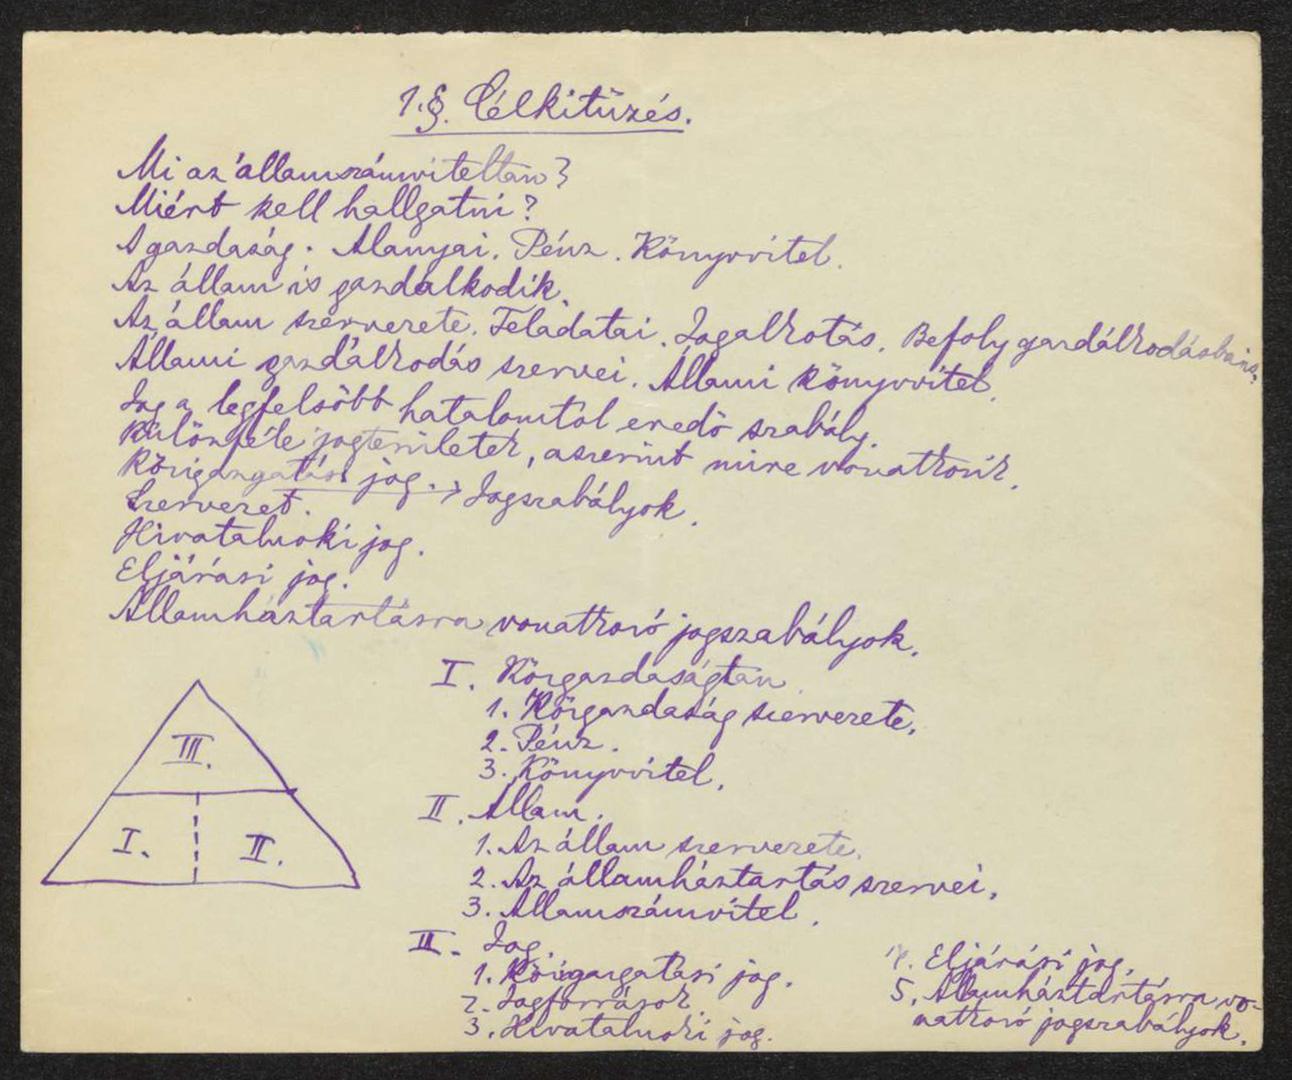 1.§. Célkitűzés.
Mi az államszámviteltan?
Miért kell hallgatni?
A gazdaság. Alanyai. Pénz. Könyvvitel.
Az állam is gazdalkodik.
Az állam szervezete. Feladatai. Jogalkotás. Befoly gazdálkodásbains.
Állami gazdálkodás szervei. Állami könyvvitel.
Jog a legfelsőbb hatalomtól eredő szabály.
Különféle jogterületek, aszerint mire vonatkozik.
Közigazgatási jog. → Jogszabályok.
Szervezet.
Hivatalnoki jog.
Eljárási jog.
Államháztartásra vonatkozó jogszabályok.
I. Közgazdaságtan
1. Közgazdaság szervezete.
2. Pénz.
3. Könyvvitel.
II. Állam.
1. Az állam szervezete.
2. Az államháztartás szervei.
3. Államszámvitel.
III. Jog.
1. Közigazgatási jog.
2. Jogforrások
3. Hivatalnoki jog.
4. Eljárási jog.
5. Államháztartásra vo-
natkozó jogszabályok.
III.
I. II.